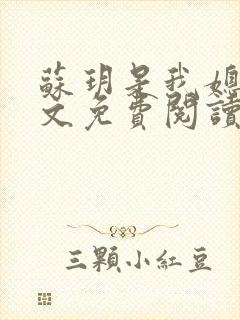 蘇玥是我媽
文免費閱讀
三顆小紅豆